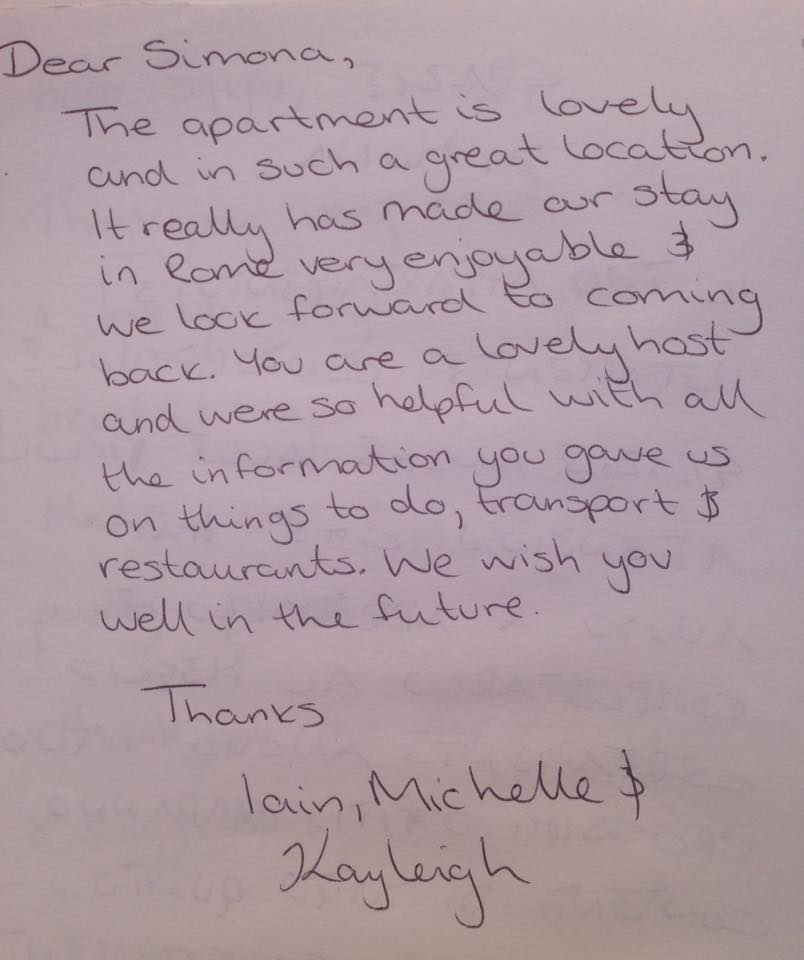 Dear Simona,
The apartment is lovely
and in such a great location.
It really has made our stay
in Rome very enjoyable &
we look forward to coming
back. You are a lovely host
and were so helpful with all
the information you gave us
on things to do, transport &
restaurants. We wish you
well in the future.
Thanks
Iain, Michelle &
Kayleigh